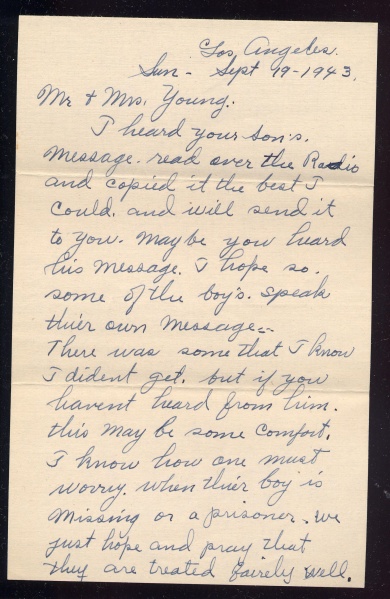 Los, Angeles.
Sun - Sept 19-1943.
Mr & Mrs. Young.
I heard your son's.
Message. read over the Radio
and copied it the best I
could. and will send it
to you. Maybe you heard
his Message. I hope so.
some of the boy's. speak
thier own Message.-
There was some that I know
I dident get. but if you
havent heard from him.
this may be some comfort.
I know how one must
worry. when thier boy is
Missing or a prisoner. we
just hope and pray that
they are treated fairely well.